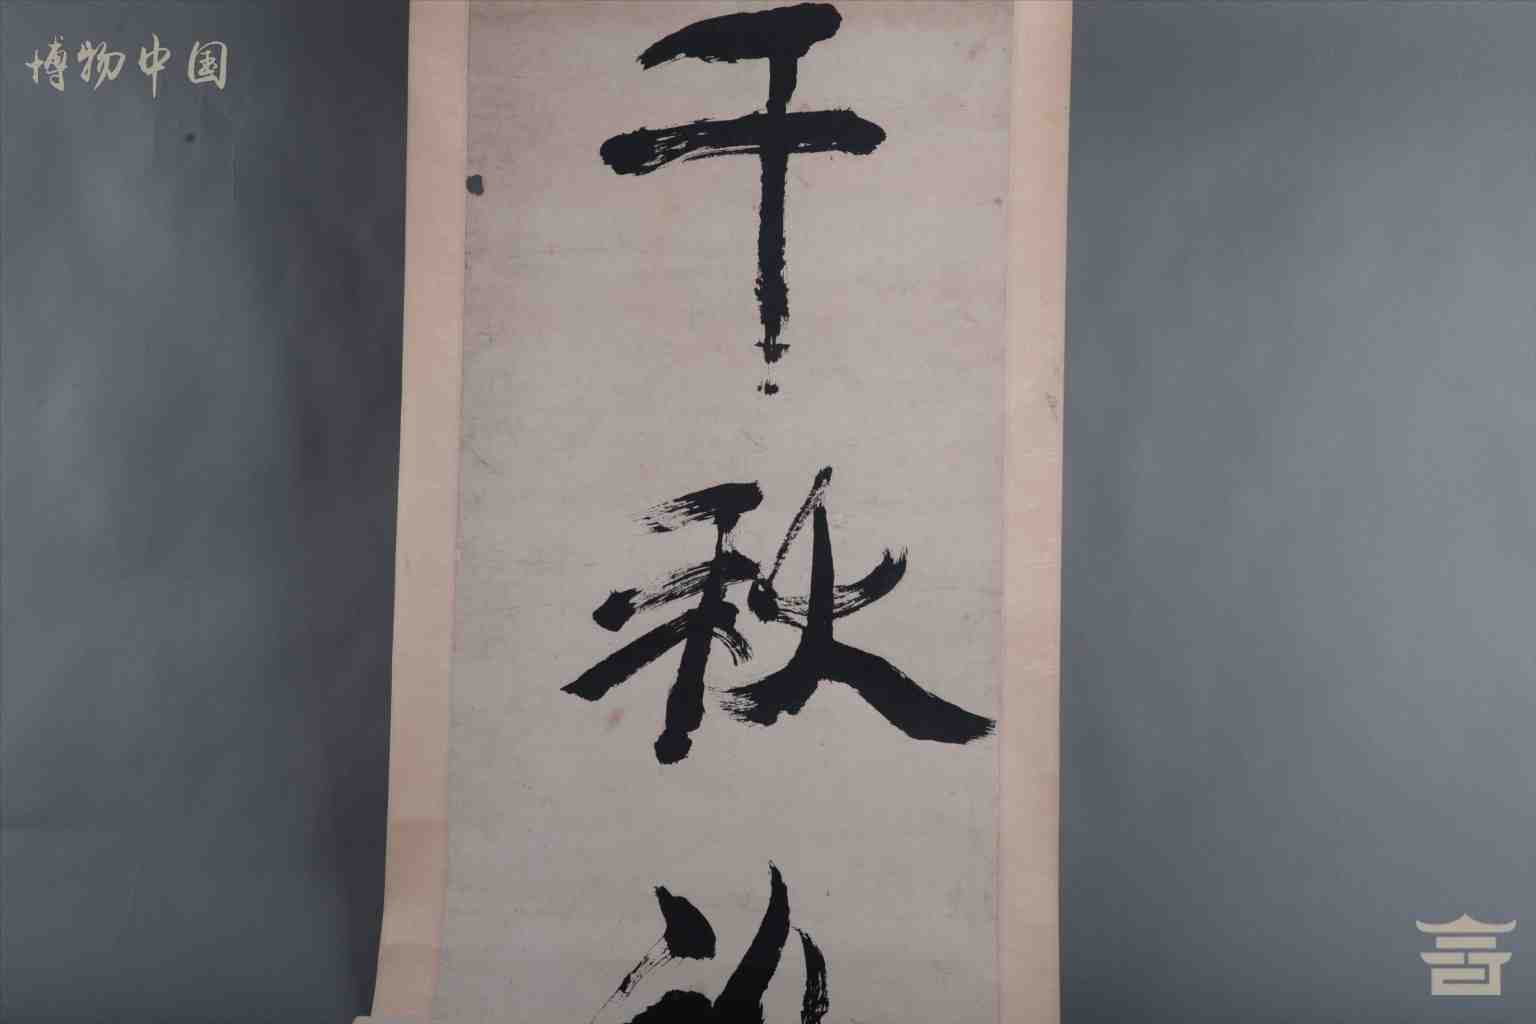 博物中国
千秋